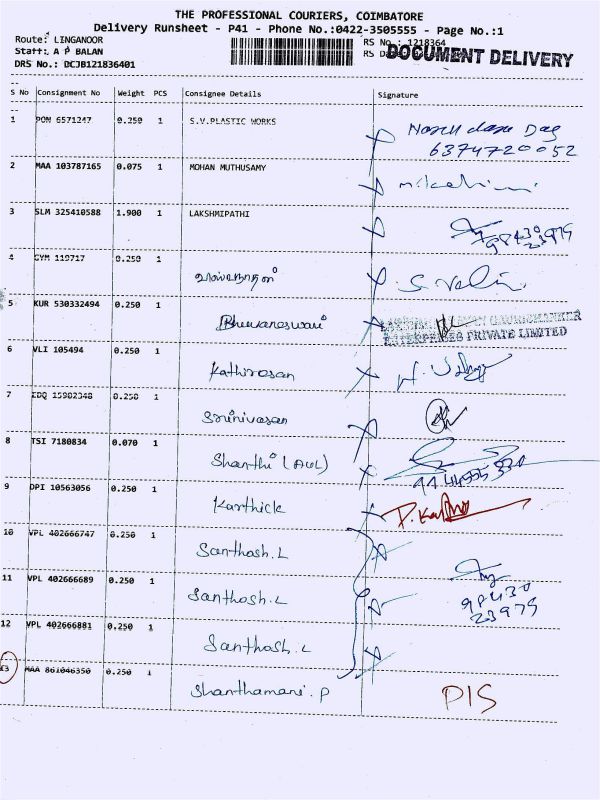 THE PROFESSIONAL COURIERS, COIMBATORE
Delivery Runsheet - P41 - Phone No.:0422-3505555 - Page No.:1
Route: LINGANOOR
RS No.: 1218364
Staff: A P BALAN
RS
DOCUMENT DELIVERY
DRS No.: DCJB121836401
S No Consignment No Weight PCS Consignee Details Signature
1 PON 6571247 0.250 1 S.V.PLASTIC WORKS
6374720052
2 MAA 103787165 0.075 1 MOHAN MUTHUSAMY
3 SLM 325410588 1.900 1 LAKSHMIPATHI
98430
23979
4 GYM 119717 0.250 1
5 KUR 530332494 0.250 1 Bhuvaneswari
ENTERPRISES PRIVATE LIMITED
6 VLI 105494 0.250 1 Kathiresan
7 IDQ 15902348 0.250 1 Srinivasan
8 TSI 7180834 0.070 1 Shanthi (AUL)
9 DPI 10563056 0.250 1 Karthick
10 VPL 402666747 0.250 1 Santhosh.L
11 VPL 402666689 0.250 1 Santhosh.L
98430
23979
12 VPL 402666881 0.250 1 Santhosh.L
13 MAA 861046350 0.250 1 Shanthamani.P PIS